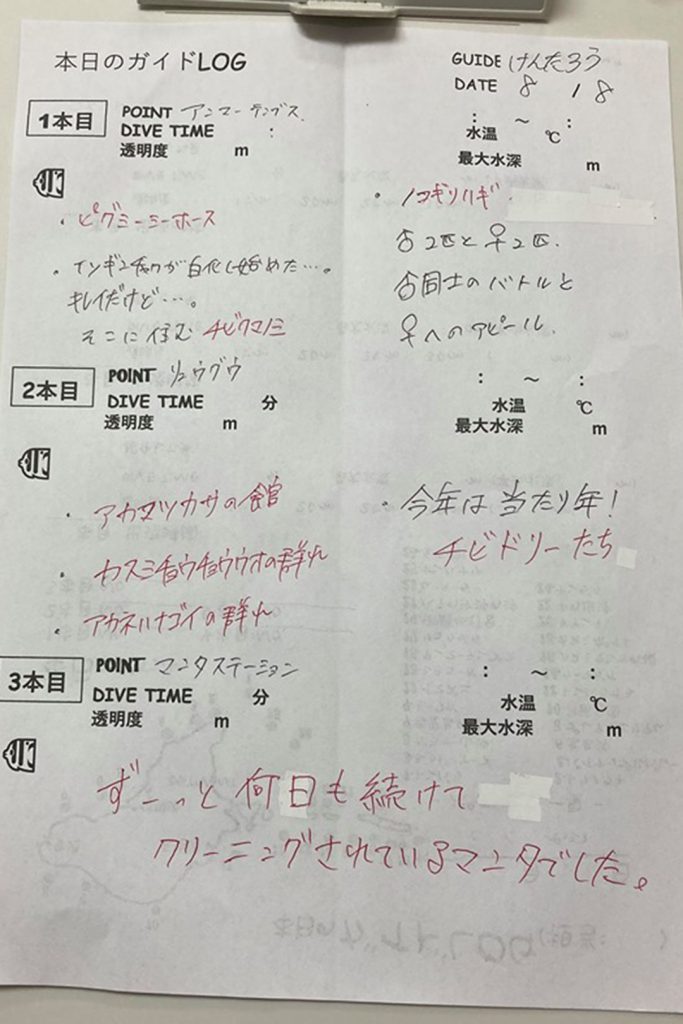 本日のガイドLOG
GUIDE けんたろう
DATE 8 / 8
1本目
POINT アンマーテンブス
DIVE TIME :
透明度 m
: ~ :
水温 ℃
最大水深 m
・ピグミーシーホース
・イソギンチャクが白化し始めた…。
キレイだけど…。
そこに住む チビクマノミ
・ノコギリハギ
♂2匹と♀2匹.
♂同士のバトルと
♀へのアピール.
2本目
POINT リュウグウ
DIVE TIME 分
透明度 m
: ~ :
水温 ℃
最大水深 m
・アカマツカサの館
・カスミチョウチョウウオの群れ
・アカネハナゴイの群れ
・今年は当たり年!
チビドリーたち
3本目
POINT マンタステーション
DIVE TIME 分
透明度 m
: ~ :
水温 ℃
最大水深 m
ずーっと何日も続けて
クリーニングされているマンタでした。